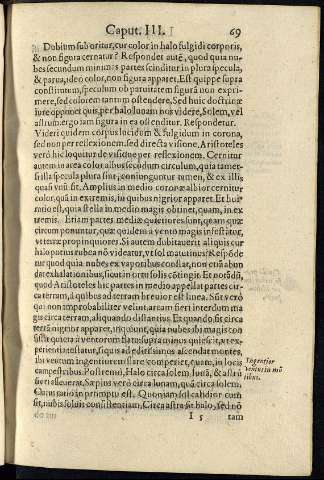 Caput. III. 69
Dubium suboritur, cur color in halo fulgidi corporis,
& non figura cernatur? Respondet autē, quod quia nu-
bes secundum minimas partes scinditur in plura specula,
& parua, ideo color, non figura apparet. Est quippe supra
constitutum, speculum ob paruitatem figurā non expri-
mere, sed colorem tantum ostendere. Sed huic doctrinæ
iure opponet quis, per halo lunam nos videre, Solem, vel
astrum. ergo iam figura in ea ostenditur. Respondetur.
Videri quidem corpus lucidum & fulgidum in corona,
sed non per reflexionem, sed directa visione. Aristoteles
verò hic loquitur de visione per reflexionem. Cernitur
autem in area color albus secundum circulum, quia tamet-
si illa specula plura sint, coniunguntur tamen, & ex illis
quasi vnū fit. Amplius in medio coronæ albior cernitur
color, quā in extremis, in quibus nigrior apparet. Et hoc
ratio est, quia stella in medio magis obtinet, quam, in ex-
tremis. Etiam partes mediæ quietiores sunt, quàm quæ
circum ponuntur, quæ quidem à vento magis infestātur,
vt terræ propinquiores. Si autem dubitauerit aliquis cur
halo potius rubea nō videatur, vt sol matutinus? Respōde
tur quod quia nubes ex vaporibus constat, non etiā abun
dat exhalationibus, sicut in ortu solis cōtingit. Et notādū,
quod Aristoteles hic partes in medio appellat partes cir-
ca terram, à quibus ad terram breuior est linea. Sūt verò
qui non improbabiliter velint, aream fieri interdum ma
gis circa terram, aliquando distantius. Et quando fit circa
terrā nigrior apparet, inquiunt, quia nubes ibi magis con
sistit quieta à ventorum flatu: supra minus quiescit, at ex-
perientia testatur, siquis ad editissimos ascendat montes,
ibi ventum ingentiorem flare comperiet, quam, in locis
campestribus. Postremò, Halo circa solem, lunā, & astra
fieri asseuerat. Sæpius verò circa lunam, quā circa solem.
Cuius ratio in promptu est. Quoniam sol calidior cum
sit, nubis soluit consistentiam. Circa astra fit halo, sed nō
Ingentior
ventus in mō
tibus.
I 5 tam